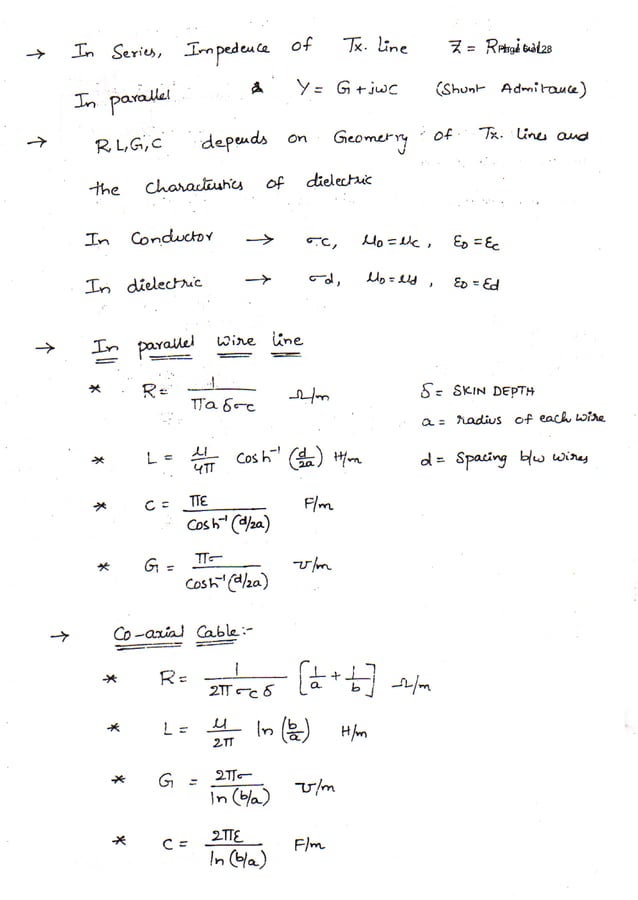 → In Series, Impedence of Tx. line Z = R
In parallel & Y = G + jωC (Shunt Admitance)
→ R, L, G, C depends on Geometry of Tx. lines and
the characteristics of dielectric
In Conductor → σc, μ0 = μc, ε0 = εc
In dielectric → σd, μ0 = μd, ε0 = εd
→ In parallel wire line
* R = 1/(πaδσc) Ω/m δ = SKIN DEPTH
a = radius of each wire
* L = μ/4π cosh⁻¹(d/2a) H/m d = Spacing b/w wires
* C = πε/cosh⁻¹(d/2a) F/m
* G = πσ/cosh⁻¹(d/2a) ℧/m
→ Co-axial Cable:-
* R = 1/(2πσcδ) [1/a + 1/b] Ω/m
* L = μ/2π ln(b/a) H/m
* G = 2πσ/ln(b/a) ℧/m
* C = 2πε/ln(b/a) F/m